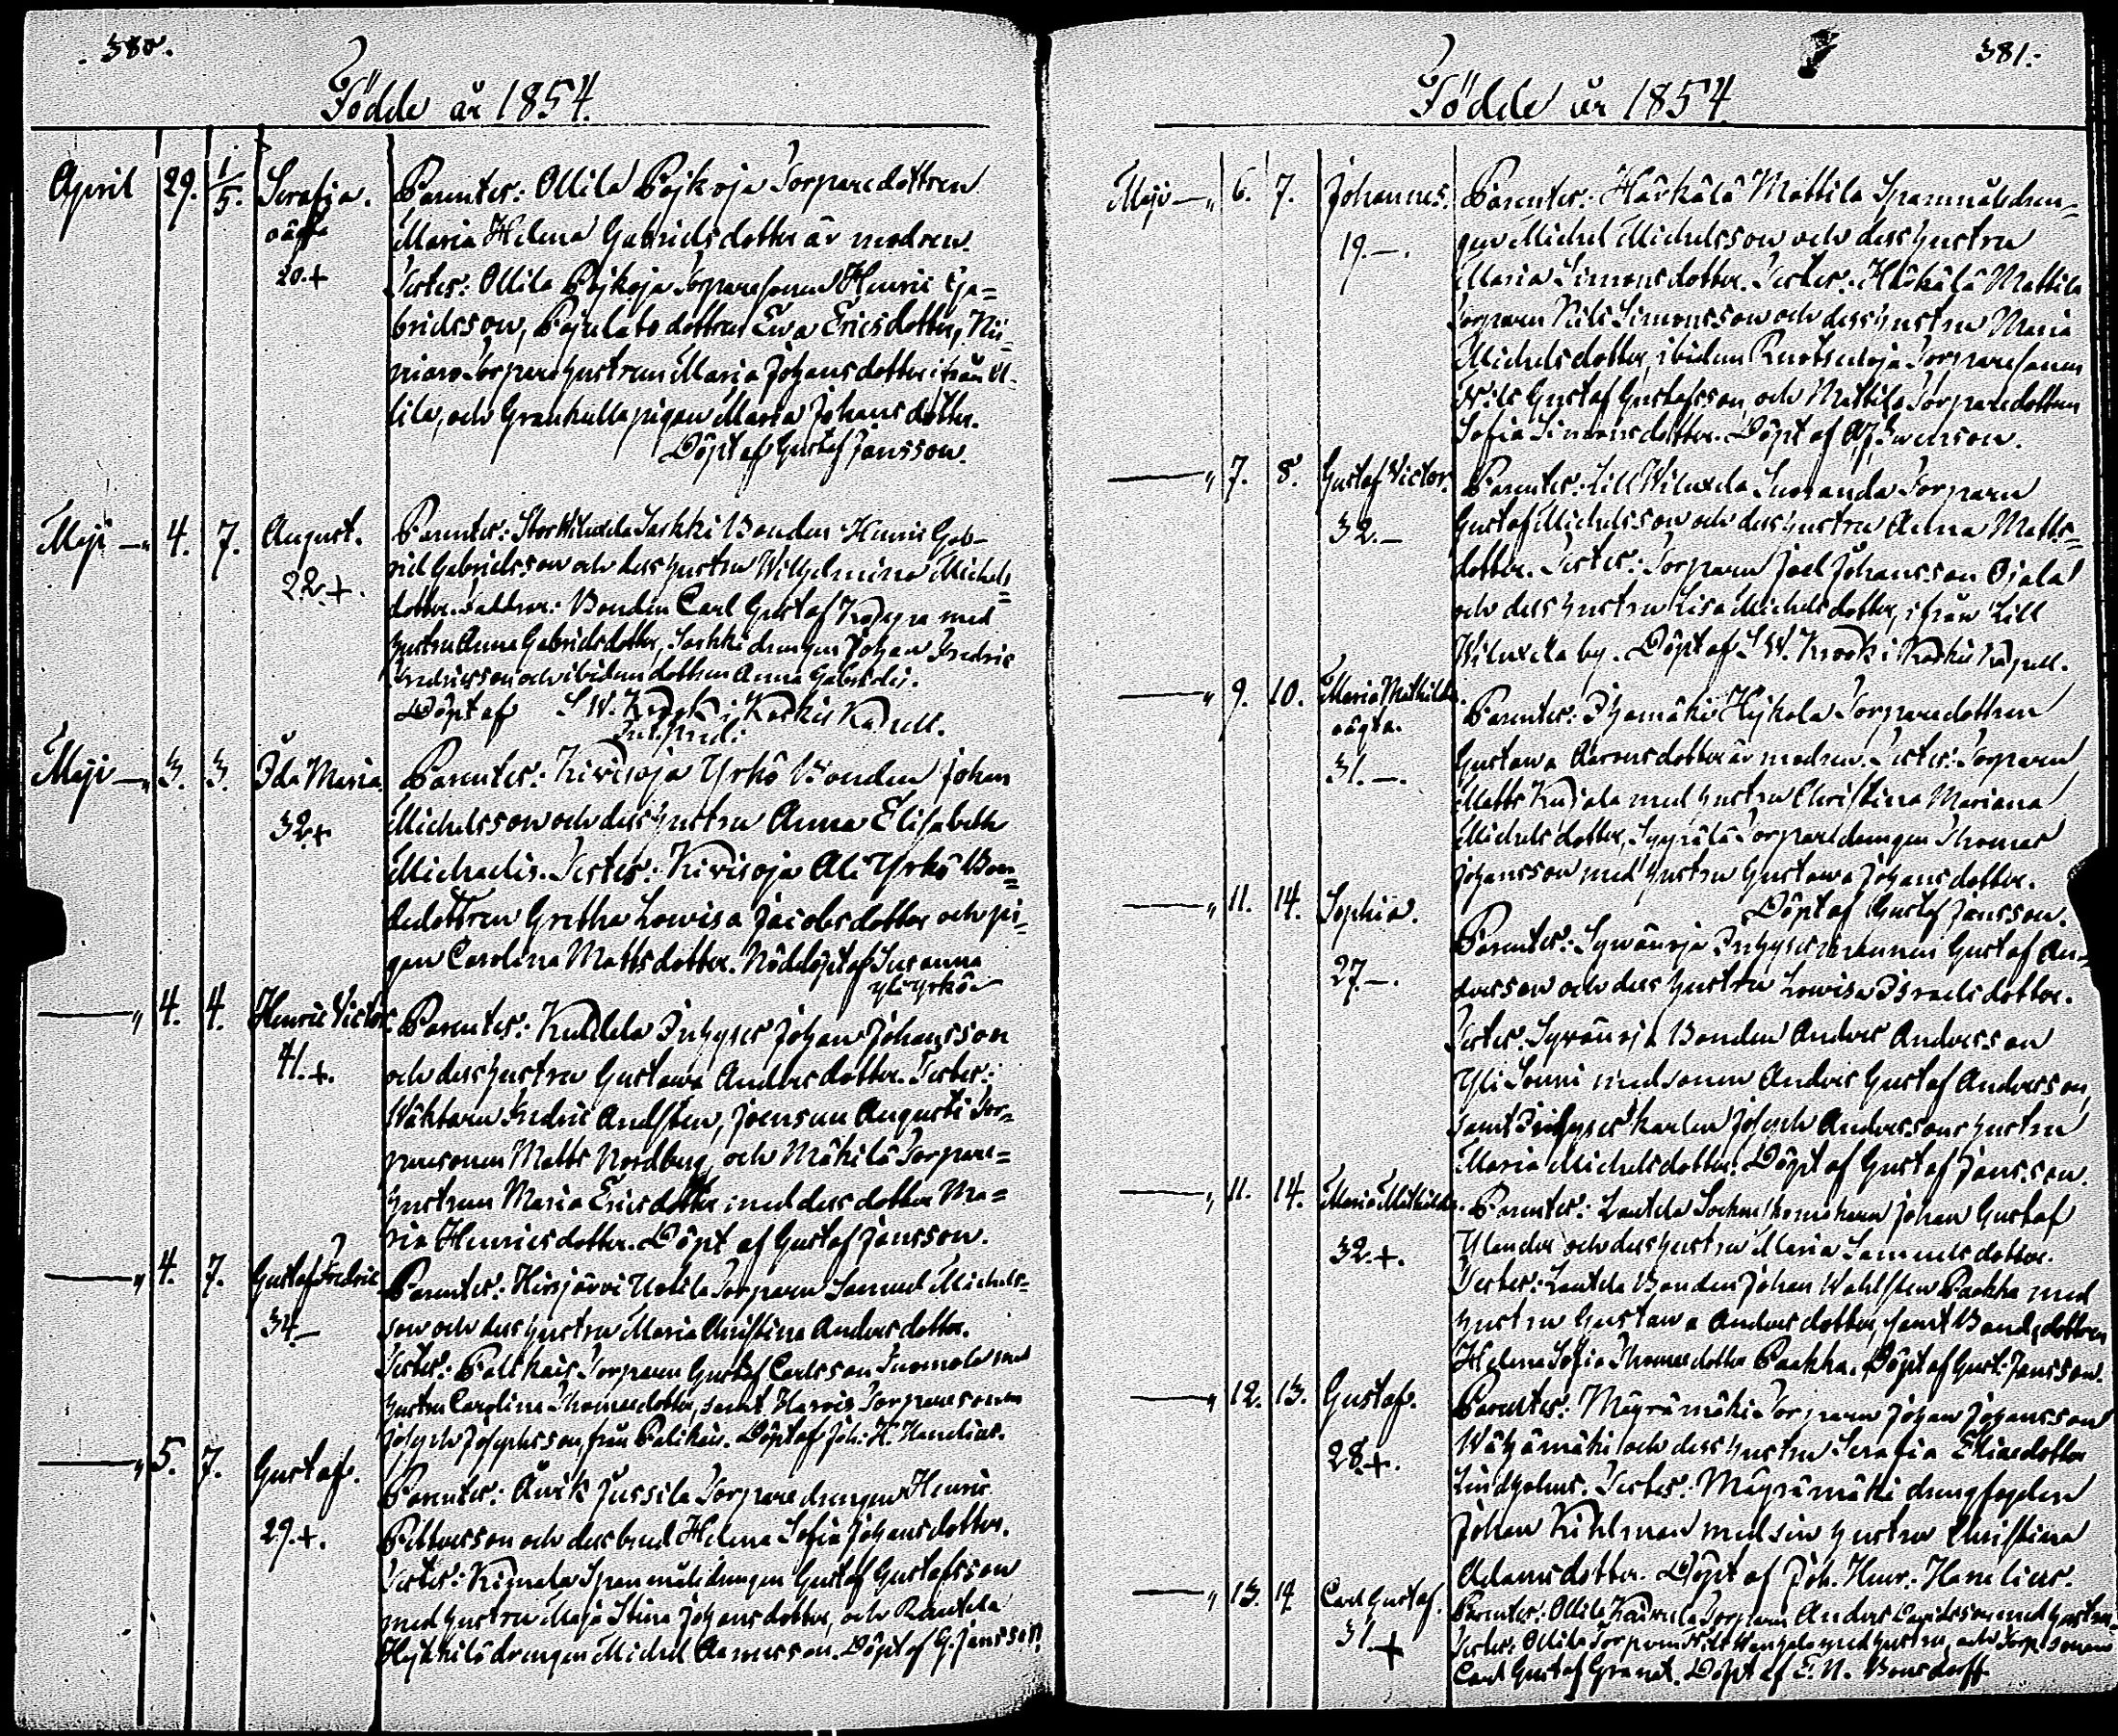 380.
Födde år 1854.
April 29. 1/5. Serafia. Parentes: Ollila Pajkoja Torparedottren
oägta Maria Helena Gabrielsdotter är modren.
20.+ Testes: Ollila Pajkoja Torparesonen Henric Ga=
brielsson, dottren Ewa Ericsdotter, Nii=
Torparehustrun Maria Johansdotter ifrån Ol=
lila, och Grankulla pigan Maria Johansdotter.
Döpt af Gustaf Jansson.
Maji —„ 4. 7. August. Parentes: Bonden Henric Gab-
22.+. riel Gabrielsson och dess hustru Wilhelmina Michels=
dotter. Bonden Carl Gustaf med
hustru Anna Gabrielsdotter, drengen Johan Fredric
Fredricsson och ibidem dottren Anna Gabrielis.
Döpt af S W. Krook i Koskis Kapell.
Maji —„ 3. 3. Ida Maria. Parentes: Kivisoja Yrkö Bonden Johan
32.+ Michelsson och dess hustru Anna Elisabeth
Michaelis. Testes: Kivisoja Ali Yrkö Bon=
dedottren Gretha Lowisa Jacobsdotter och pi=
gan Carolina Mattsdotter. Nöddöpt af Susanna
Yli Yrkö
—„ 4. 4. Henric Victor. Parentes: Inhyses Johan Johansson
41.+. och dess hustru Gustawa Andersdotter. Testes:
Fredric Joensuu Augusti Tor=
paresonen Matts Nordberg, och Mäkilä Torpare=
hustrun Maria Ericsdotter med dess dotter Ma=
ria Henricsdotter. Döpt af Gustaf Jansson.
—„ 4. 7. Gustaf Fredric Parentes: Hirsjärvi Torparen Samuel Michels=
34.— son och dess hustru Maria Christina Andersdotter.
Testes: Torparen Gustaf Carlsson med
hustru Carolina Thomasdotter, samt Torparesonen
Joseph Josephsson, från Döpt af Joh. H. Hanelius.
—„ 5. 7. Gustaf. Parentes: Äwik Jussila Torparedrengen Henric
29.+. Pettersson och dess brud Helena Sofia Johansdotter.
Testes: Spanmålsdrengen Gustaf Gustafsson
med hustru Maja Stina Johansdotter, och Rautela
Heikkilä drengen Michel Aaronsson. Döpt af G. Jansson.
381.
Födde år 1854.
Maji —„ 6. 7. Johannes. Parentes: Härkälä Mattila Spanmålsdren=
19.—. gen Michel Michelsson och dess hustru
Maria Simonsdotter. Testes: Härkälä Mattila
Torparen Nils Simonsson och dess hustru Maria
Michelsdotter, ibidem Torparesonen
Nils Gustaf Gustafsson, och Mattila Torparedottren
Sofia Simonsdotter. Döpt af
—„ 7. 8. Gustaf Victor. Parentes: Lill Wiluxela Torparen
32.— Gustaf Michelsson och dess hustru Anna Matts=
dotter. Testes: Torparen Joel Johansson Ojala
och dess hustru Lisa Michelsdotter, ifrån Lill
Wiluxela by. Döpt af S W. Krook i Koskis Kapell.
—„ 9. 10. Maria Mathilda. Parentes: Torparedottren
oägta. Gustawa Aaronsdotter är modren. Testes: Torparen
31.—. Matts med hustru Christina Mariana
Michelsdotter, Torparedrengen Thomas
Johansson med hustru Gustawa Johansdotter.
Döpt af Gustaf Jansson.
—„ 11. 14. Sophia. Parentes: Sywänoja Inhyses Gustaf An=
27.—. dersson och dess hustru Lowisa Israelsdotter.
Testes: Sywänoja Bonden Anders Andersson
Yli Sonni med sonen Anders Gustaf Andersson,
samt Inhyses karlen Joseph Anderssons hustru
Maria Michelsdotter. Döpt af Gustaf Jansson.
—„ 11. 14. Maria Mathilda. Parentes: Rautela Sockneskomakaren Johan Gustaf
32.+. Ylander och dess hustru Maria Samuelsdotter.
Testes: Rautela Bonden Johan Wahlsten Paakka med
hustru Gustawa Andersdotter, samt Bondedottren
Helena Sofia Thomasdotter Paakka. Döpt af Gust. Jansson.
—„ 12. 13. Gustaf. Parentes: Mäyrämäki Torparen Johan Johansson
28.+. Wähämäki och dess hustru Serafia Eliaedotter
Lindholm. Testes: Mäyrämäki drengfogden
Johan Kihlman med sin hustru Christina
Adamsdotter. Döpt af Joh. Henr. Hanelius.
—„ 13. 14. Carl Gustaf. Parentes: Ollila Torparen Anders Davidsson med hustru
31.+ Testes: Ollila Torparen Nils med hustru, och Torp. sonen
Carl Gustaf Döpt af E. N. Bonsdorff.